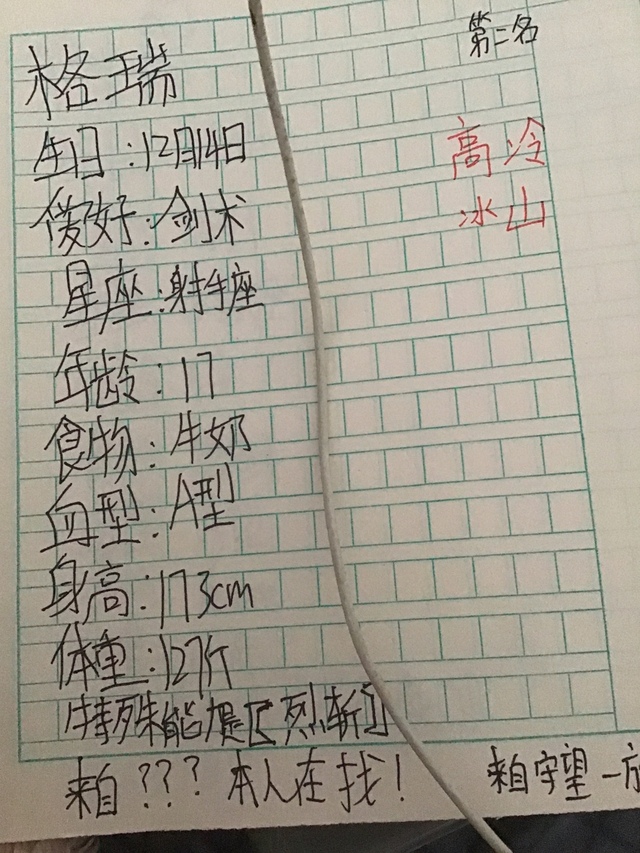 第二名
格瑞
生日:12月14日
高冷
爱好:剑术
冰山
星座:射手座
年龄:17
食物:牛奶
血型:A型
身高:173cm
体重:127斤
特殊能是【烈斩】
来自???本人在找!
来自守望一方